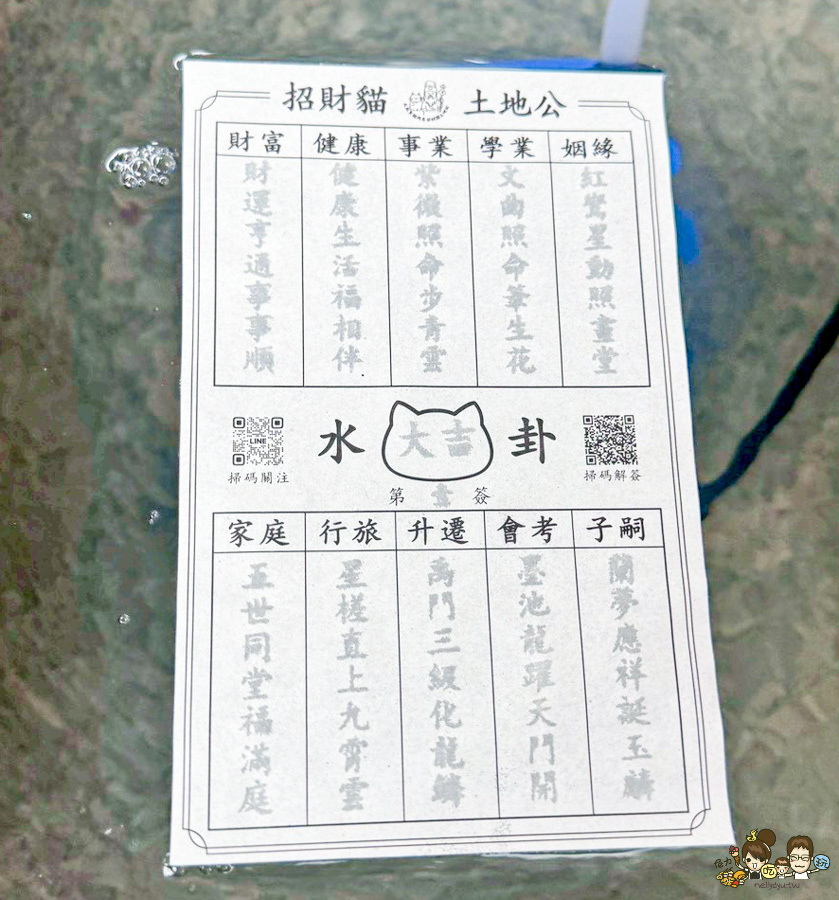 招財貓 土地公
財富 健康 事業 學業 姻緣
財運亨通事事順
健康生活福相伴
紫微照命步青雲
文曲照命筆生花
紅鸞星動照畫堂
水 大吉 卦
LINE
掃碼關注
掃碼解簽
第 簽
家庭 行旅 升遷 會考 子嗣
五世同堂福滿庭
星槎直上九霄雲
禹門三級化龍鱗
墨池龍躍天門開
蘭夢應祥誕玉麟
吃
玩
nellydyu.tw